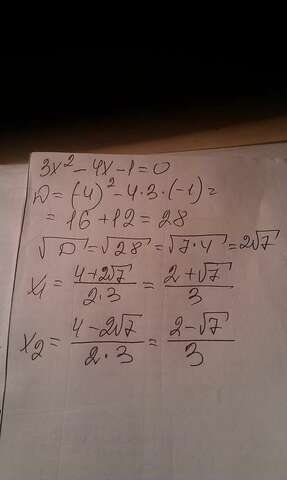 3x² - 4x - 1 = 0
D = (-4)² - 4·3·(-1) =
= 16 + 12 = 28
√D = √28 = √7·4 = 2√7
x₁ = (4+2√7)/(2·3) = (2+√7)/3
x₂ = (4-2√7)/(2·3) = (2-√7)/3